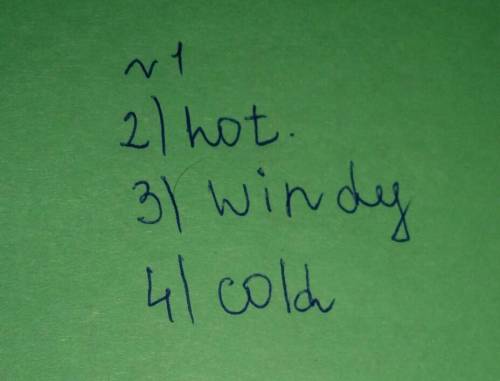 №1
2) hot.
3) windy
4) cold